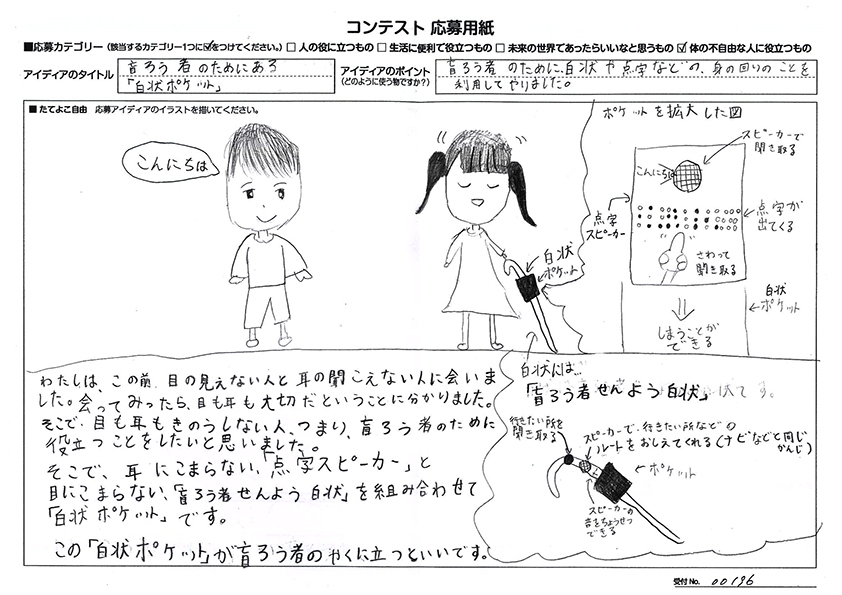 コンテスト 応募用紙
■応募カテゴリー(該当するカテゴリー1つに☑をつけてください。) □ 人の役に立つもの □ 生活に便利で役立つもの □ 未来の世界であったらいいなと思うもの ☑ 体の不自由な人に役立つもの
アイディアのタイトル
盲ろう者のためにある
「白状ポケット」
アイディアのポイント
(どのように使う物ですか?)
盲ろう者のために、白状や点字などの、身の回りのことを
利用してやりました。
■ たてよこ自由 応募アイディアのイラストを描いてください。
こんにちは
白状
ポケット
ポケットを拡大した図
スピーカーで
聞き取る
こんにちは
点字
スピーカー
点字が
出てくる
さわって
聞き取る
白状
ポケット
しまうことが
できる
わたしは、この前、目の見えない人と耳の聞こえない人に会いま
した。会ってみったら、目も耳も大切だということに分かりました。
そこで、目も耳もきのうしない人、つまり、盲ろう者のために
役立つことをしたいと思いました。
そこで、耳にこまらない、「点字スピーカー」と
目にこまらない、「盲ろう者せんよう白状」を組み合わせて
「白状ポケット」です。
この「白状ポケット」が盲ろう者のやくに立つといいです。
白状には…
「盲ろう者せんよう白状」
です。
行きたい所を
聞き取る
スピーカーで、行きたい所などの
ルートをおしえてくれる(ナビなどと同じ
かんじ)
ポケット
スピーカーの
音をちょうせつ
できる
受付No. 00196